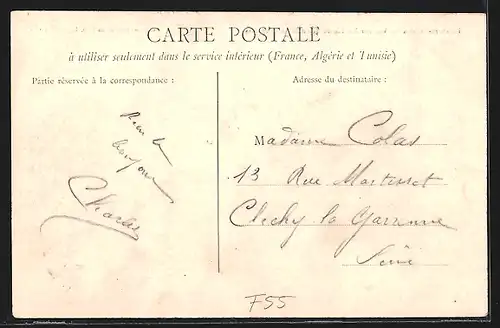 CARTE POSTALE
à utiliser seulement dans le service intérieur (France, Algérie et Tunisie)
Partie réservée à la correspondance :
Adresse du destinataire :
bonjour
Charles
Madame Colas
13 Rue Martisset
Clichy la Garenne
Seine
F55